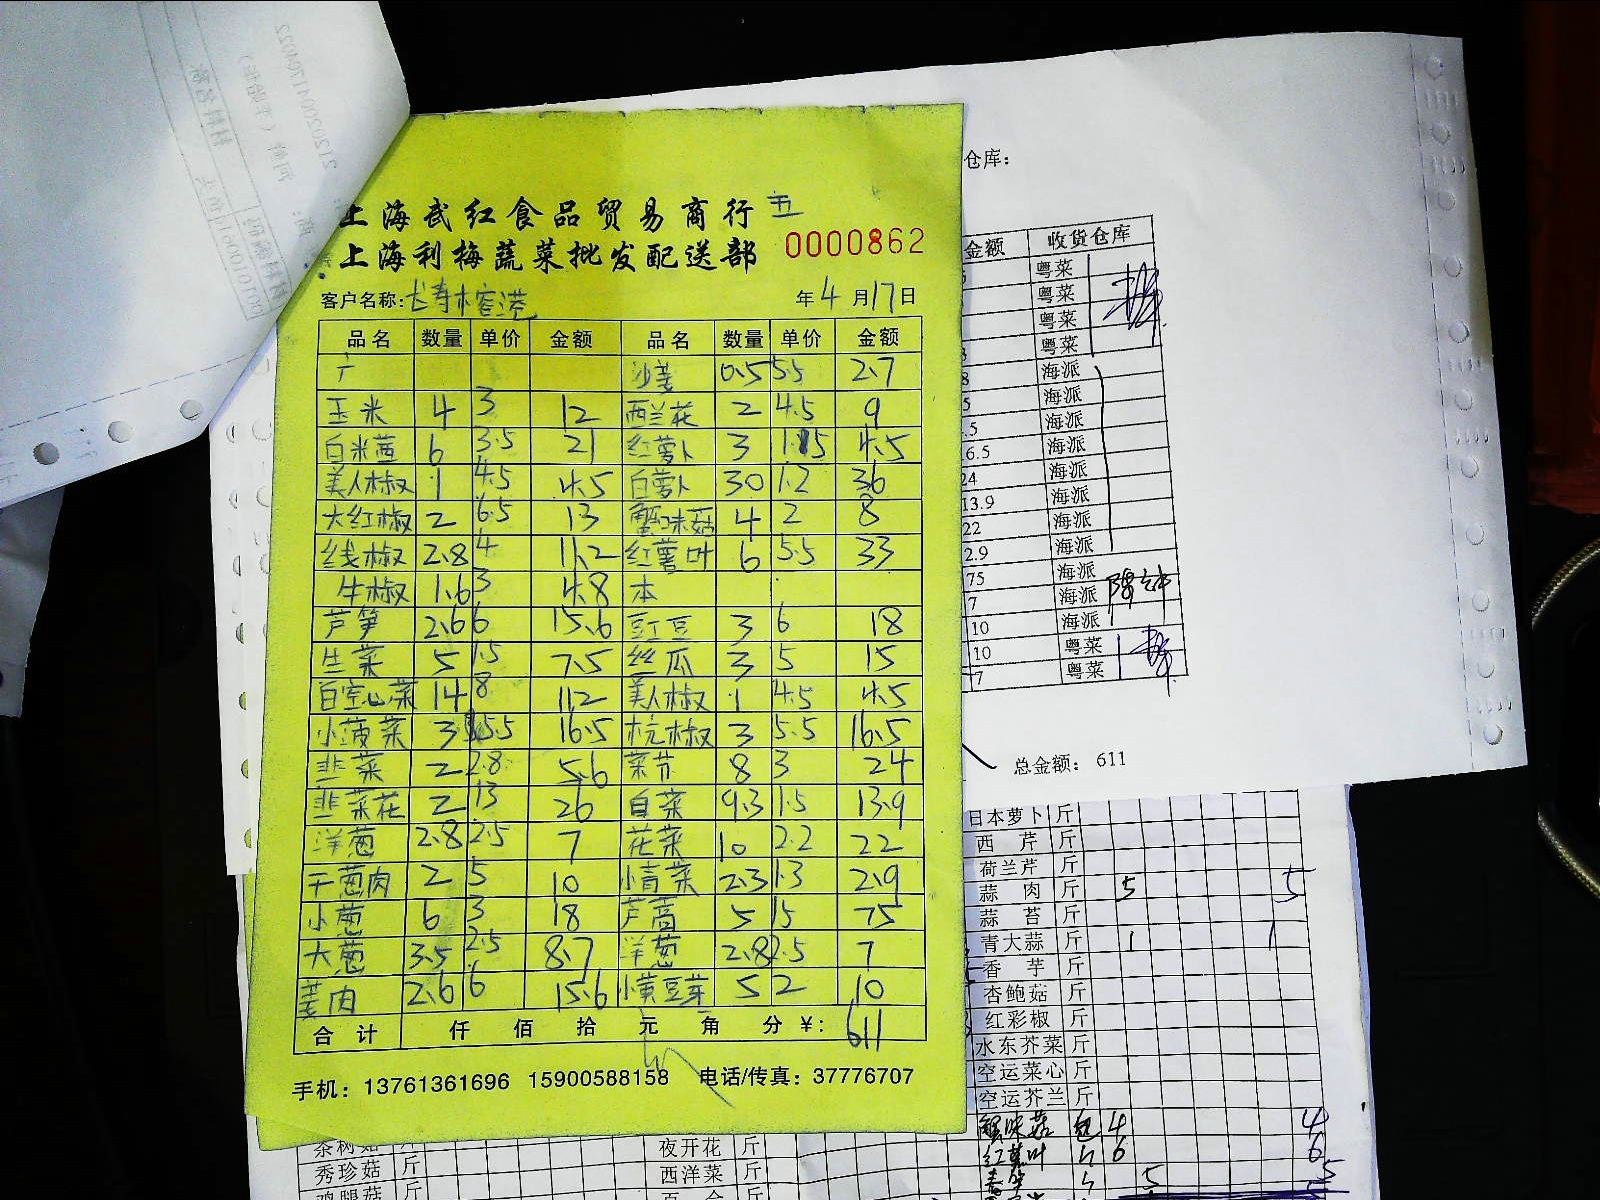 上海武红食品贸易商行 五
上海利梅蔬菜批发配送部 0000862
客户名称:长寿榕港 年4月17日
品名 数量 单价 金额 品名 数量 单价 金额
广 沙姜 0.5 5.5 2.7
玉米 4 3 12 西兰花 2 4.5 9
白米茜 6 3.5 21 红萝卜 3 1.5 4.5
美人椒 1 4.5 4.5 白萝卜 30 1.2 36
大红椒 2 6.5 13 蟹味菇 4 2 8
线椒 2.8 4 11.2 红薯叶 6 5.5 33
牛椒 1.6 3 4.8 本
芦笋 2.6 6 15.6 豇豆 3 6 18
生菜 5 1.5 7.5 丝瓜 3 5 15
白空心菜 14 8 112 美人椒 1 4.5 4.5
小菠菜 3 5.5 16.5 杭椒 3 5.5 16.5
韭菜 2 2.8 5.6 菜节 8 3 24
韭菜花 2 13 26 白菜 9.3 1.5 13.9
洋葱 2.8 2.5 7 花菜 10 2.2 22
干葱肉 2 5 10 小青菜 2.3 1.3 2.9
小葱 6 3 18 芦蒿 5 15 75
大葱 3.5 2.5 8.7 洋葱 2.8 2.5 7
姜肉 2.6 6 15.6 小黄豆芽 5 2 10
合计 仟 佰 拾 元 角 分 ¥: 611
手机: 13761361696 15900588158 电话/传真: 37776707
仓库:
金额 收货仓库
粤菜
粤菜
粤菜
粤菜
8 海派
5 海派
.5 海派
6.5 海派
24 海派
13.9 海派
22 海派
2.9 海派
75 海派
7 海派
10 海派
10 粤菜
7 粤菜
总金额: 611
日本萝卜 斤
西芹 斤
荷兰芹 斤
蒜肉 斤 5 5
蒜苔 斤
青大蒜 斤 1 1
香芋 斤
杏鲍菇 斤
红彩椒 斤
水东芥菜 斤
空运菜心 斤
空运芥兰 斤
蟹味菇 包 4 4
红薯叶 6 6
5 5
茶树菇 斤 夜开花 斤
秀珍菇 斤 西洋菜 斤
鸡腿菇 斤 百合 斤